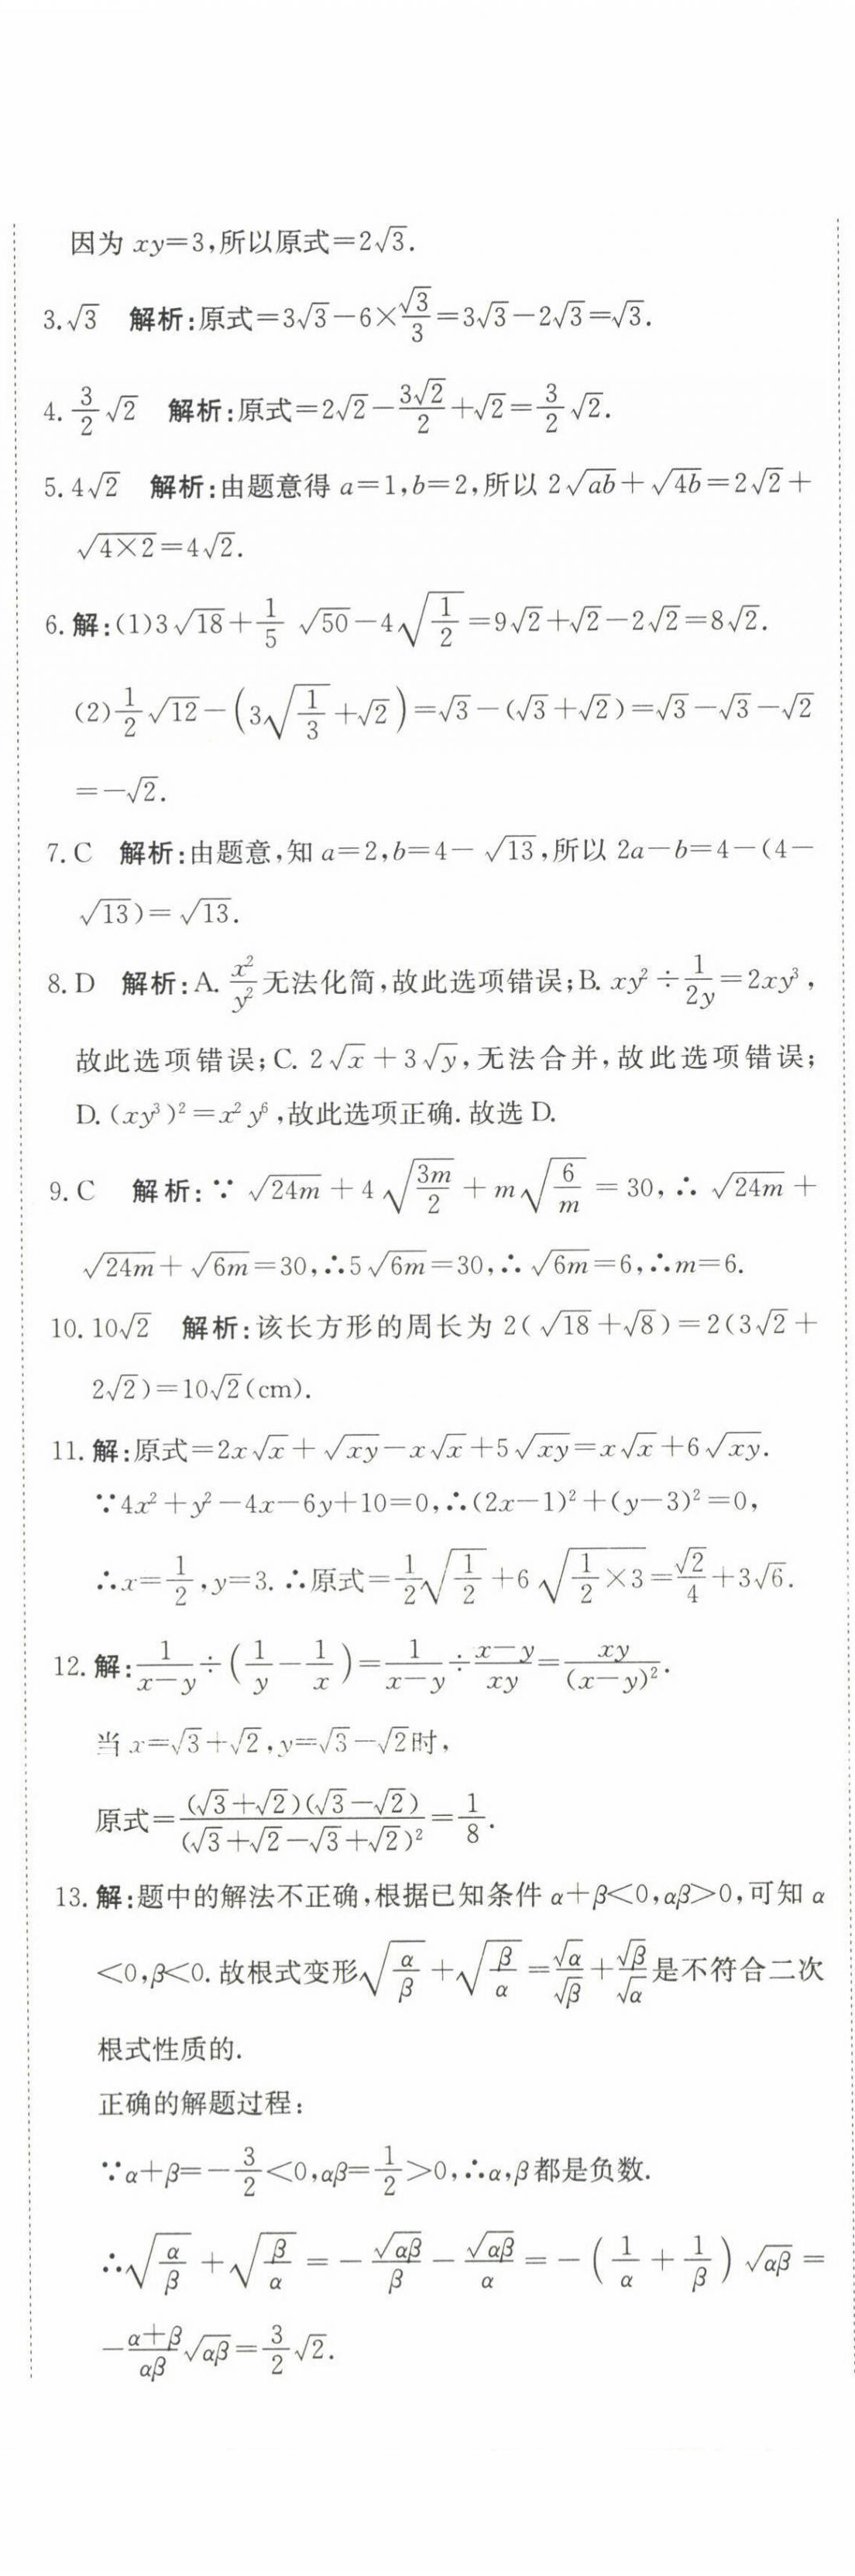 因为 xy=3,所以原式=2√3.
3.√3 解析:原式=3√3−6×√3/3=3√3−2√3=√3.
4. 3/2 √2 解析:原式=2√2−3√2/2+√2=3/2 √2.
5. 4√2 解析:由题意得 a=1,b=2,所以 2√(ab)+√(4b)=2√2+
√(4×2)=4√2.
6. 解:(1)3√18+1/5 √50−4√(1/2)=9√2+√2−2√2=8√2.
(2)1/2 √12−(3√(1/3)+√2)=√3−(√3+√2)=√3−√3−√2
=−√2.
7. C 解析:由题意,知 a=2,b=4−√13,所以 2a−b=4−(4−
√13)=√13.
8. D 解析:A. x²/y² 无法化简,故此选项错误;B. xy²÷1/(2y)=2xy³,
故此选项错误;C. 2√x+3√y,无法合并,故此选项错误;
D. (xy³)²=x²y⁶,故此选项正确. 故选 D.
9. C 解析:∵√(24m)+4√(3m/2)+m√(6/m)=30,∴√(24m)+
√(24m)+√(6m)=30,∴5√(6m)=30,∴√(6m)=6,∴m=6.
10. 10√2 解析:该长方形的周长为 2(√18+√8)=2(3√2+
2√2)=10√2(cm).
11. 解:原式=2x√x+√(xy)−x√x+5√(xy)=x√x+6√(xy).
∵4x²+y²−4x−6y+10=0,∴(2x−1)²+(y−3)²=0,
∴x=1/2,y=3. ∴原式=1/2 √(1/2)+6√(1/2×3)=√2/4+3√6.
12. 解:1/(x−y)÷(1/y−1/x)=1/(x−y)÷(x−y)/(xy)=xy/(x−y)².
当 x=√3+√2,y=√3−√2时,
原式=(√3+√2)(√3−√2)/(√3+√2−√3+√2)²=1/8.
13. 解:题中的解法不正确,根据已知条件 α+β<0,αβ>0,可知 α
<0,β<0. 故根式变形√(α/β)+√(β/α)=√α/√β+√β/√α是不符合二次
根式性质的.
正确的解题过程:
∵α+β=−3/2<0,αβ=1/2>0,∴α,β都是负数.
∴√(α/β)+√(β/α)=−√(αβ)/β−√(αβ)/α=−(1/α+1/β)√(αβ)=
−(α+β)/(αβ)√(αβ)=3/2 √2.